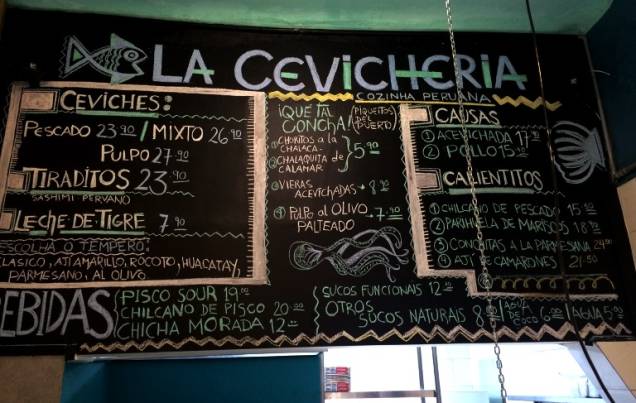 LA CEVICHERIA
COZINHA PERUANA
CEVICHES:
PESCADO 23 90 / MIXTO 26 90
PULPO 27 90
TIRADITOS 23 90
SASHIMI PERUANO
LECHE DE TIGRE 7 90
ESCOLHA O TEMPERO:
CLASICO, AJI AMARILLO, ROCOTO, HUACATAY,
PARMESANO, AL OLIVO
¡QUE TAL CONCHA!
(PIQUEITOS DE PUERTO)
① CHORITOS A LA CHALACA
② CHALAQUITA DE CALAMAR
5 90
③ VIEIRAS ACEVICHADAS 8 90
④ PULPO AL OLIVO PALTEADO 7 90
CAUSAS
① ACEVICHADA 17
② POLLO 15
CALIENTITOS
① CHILCANO DE PESCADO 15 90
② PARIHUELA DE MARISCOS 18 90
③ CONCHITAS A LA PARMESANA 24 90
④ AJI DE CAMARONES 21 50
BEBIDAS
PISCO SOUR 19 00
CHILCANO DE PISCO 20 00
CHICHA MORADA 12 00
SUCOS FUNCIONAIS 12 00
OTROS
SUCOS NATURAIS 8
AGUA DE COCO 6 00
AGUA 5 00